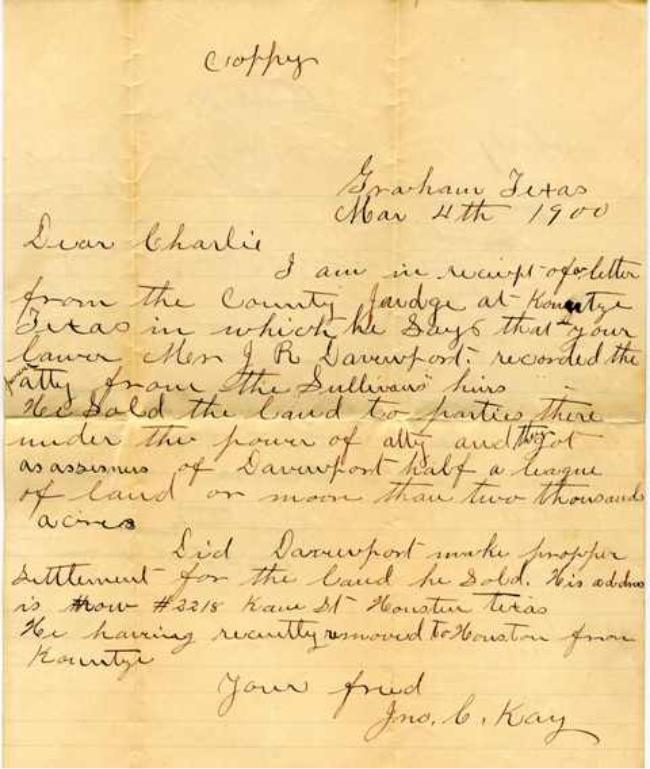 Coppy
Graham Texas
Mar 4th 1900
Dear Charlie
I am in reciept of a letter
from the County Jaudge at Kountze
Texas in which he Says that your
lawer Mr J R Davenport recorded the
power atty from the Sullivans hirs
He Sold the land to parties there
under the power of atty and they got
as assesners of Davenport half a league
of land or moor than two thousand
acires
Did Davenport make propper
settlement for the land he Sold. His address
is now #2218 Kane St Houston texas
He having recently removed to Houston from
Kountze
Your fried
Jno. C. Kay